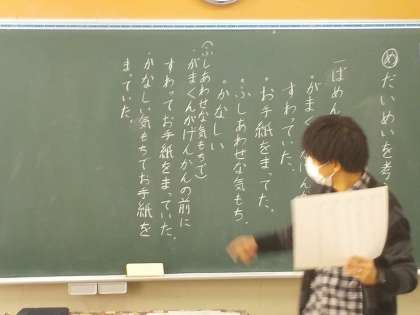 め だいめいを考
一ばめん
・がまく
すわっていた、
・お手紙をまってた。
・ふしあわせな気もち、
・かなしい
(ふしあわせな気もちで)
・がまくんがげんかんの前に
すわってお手紙をまっていた。
・かなしい気もちでお手紙を
まっていた。